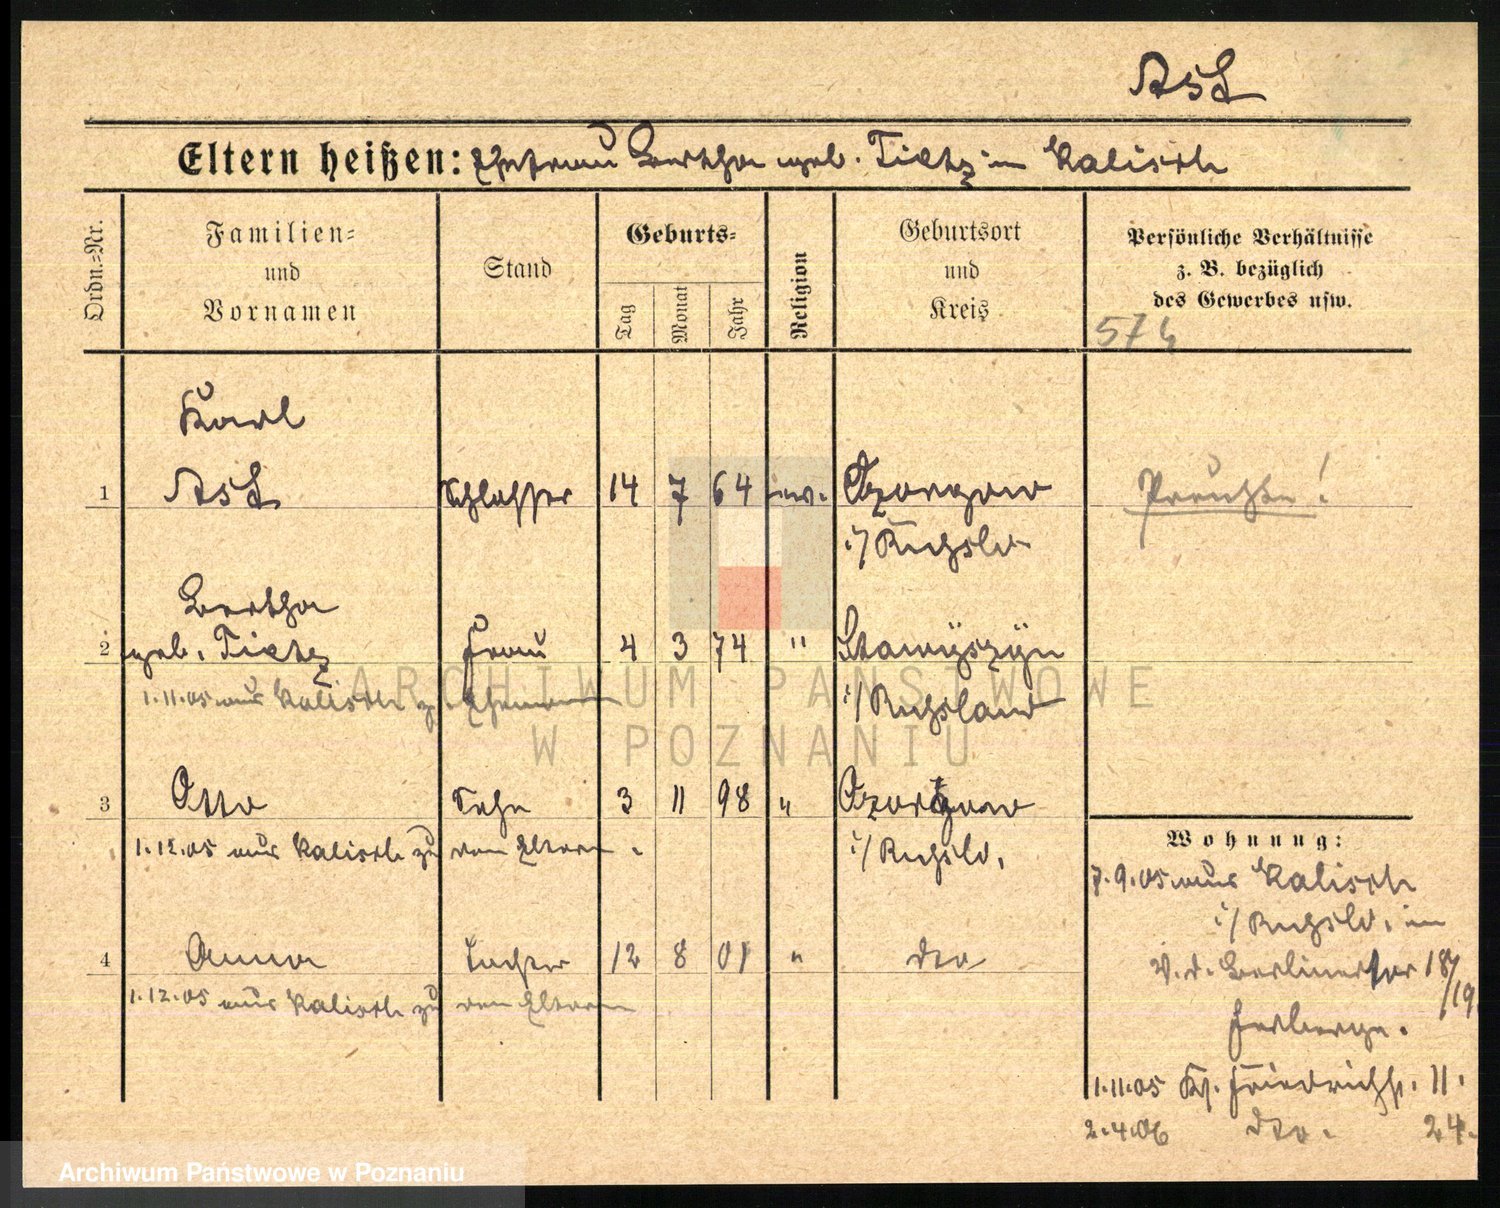 Ask
Eltern heißen: Ehefrau Bertha geb. Tietz in Kalisch
Ordn.=Nr.
Familien=
und
Vornamen
Stand
Geburts=
Tag
Monat
Jahr
Religion
Geburtsort
und
Kreis
Persönliche Verhältnisse
z. B. bezüglich
des Gewerbes usw.
574
Karl
1 Schlosser 14 7 64 ev. Ozorgow
i/ Russld
Preuße!
Bertha
2 geb. Tietz Frau 4 3 74 " Stawiszyn
1.11.05 aus Kalisch z. Ehemann
i/ Russland
3 Otto Sohn 3 11 98 " Ozorgow
1.12.05 aus Kalisch zu den Eltern.
i/ Russld.
4 Anna Tochter 12 8 01 " dto
1.12.05 aus Kalisch zu den Eltern
Wohnung:
7.9.05 aus Kalisch
i/ Russld. in
V. d. Berlinertor 18/19
Herberge.
1.11.05 Friedrichs. 11.
2.4.06 dto. 24.
ARCHIWUM PAŃSTWOWE
W POZNANIU
Archiwum Państwowe w Poznaniu